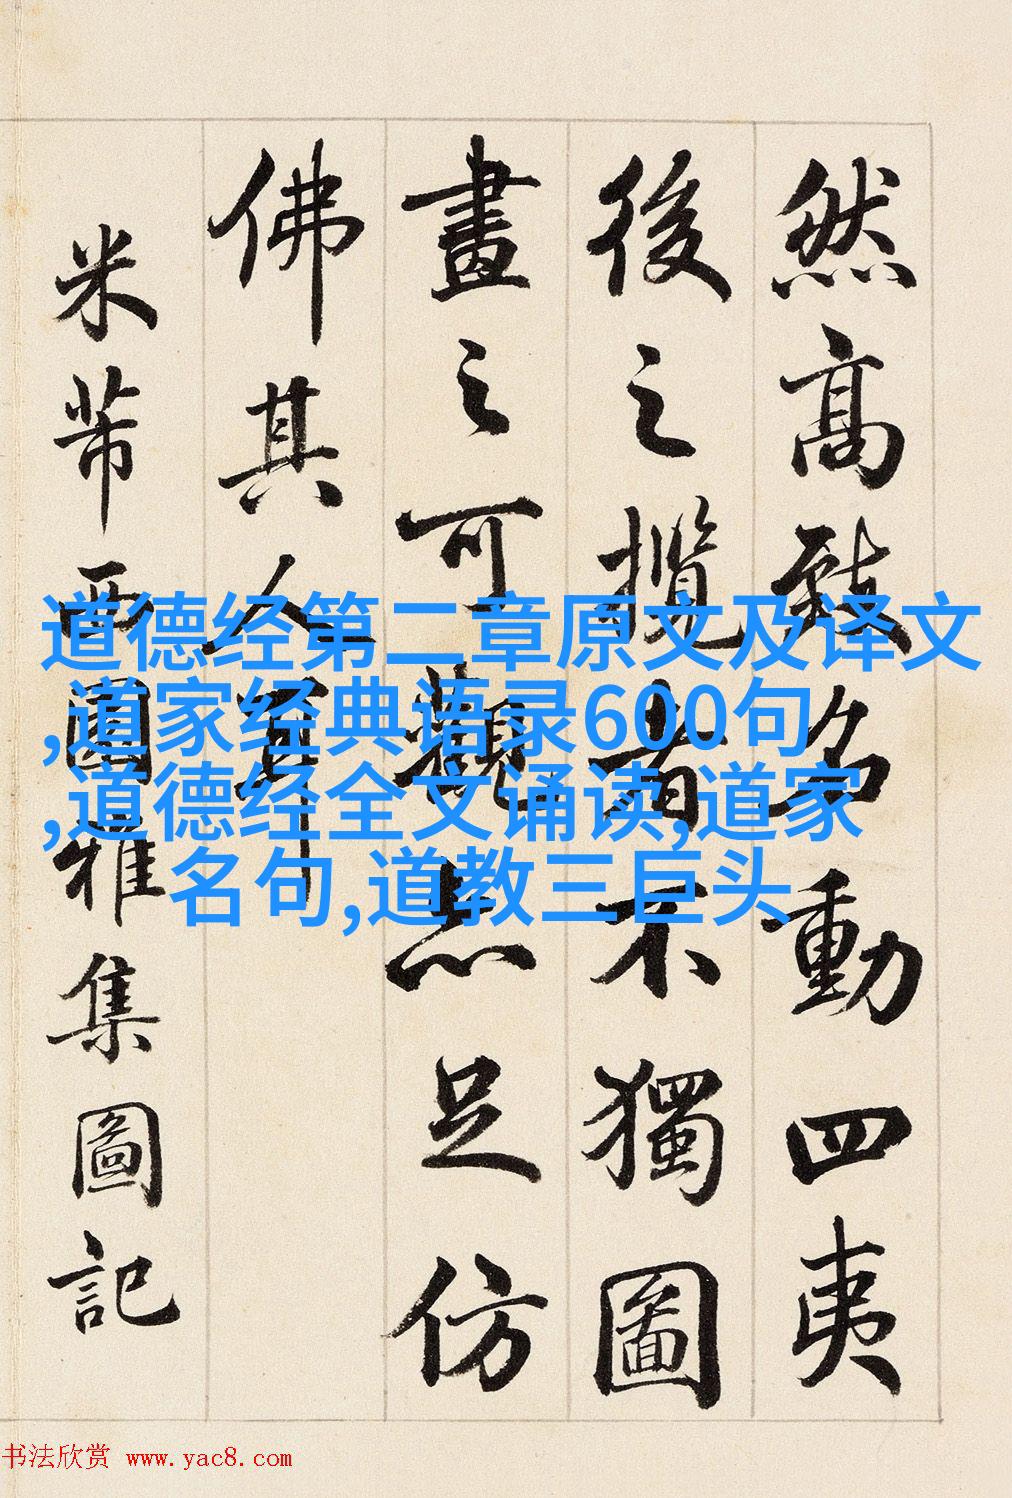 然高致名動四夷
後之攬者不獨圖
畫之可觀亦足仿
佛其人耳
米芾西園雅集圖記
道德经第二章原文及译文
,道家经典语录600句
,道德经全文诵读,道家
名句,道教三巨头
书法欣赏 www.yac8.com